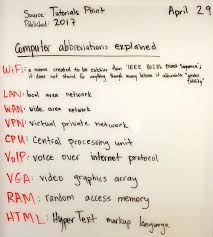 Source: Tutorials Point
April 29
Published: 2017
Computer abbreviations explained
WiFi: a name created to be catchier than "IEEE 802.11b Direct Sequence";
it does not stand for anything though many believe it abbreviates "wireless
fidelity"
LAN: local area network
WAN: wide area network
VPN: virtual private network
CPU: Central processing unit
VoIP: voice over internet protocol
VGA: video graphics array
RAM: random access memory
HTML: HyperText markup language